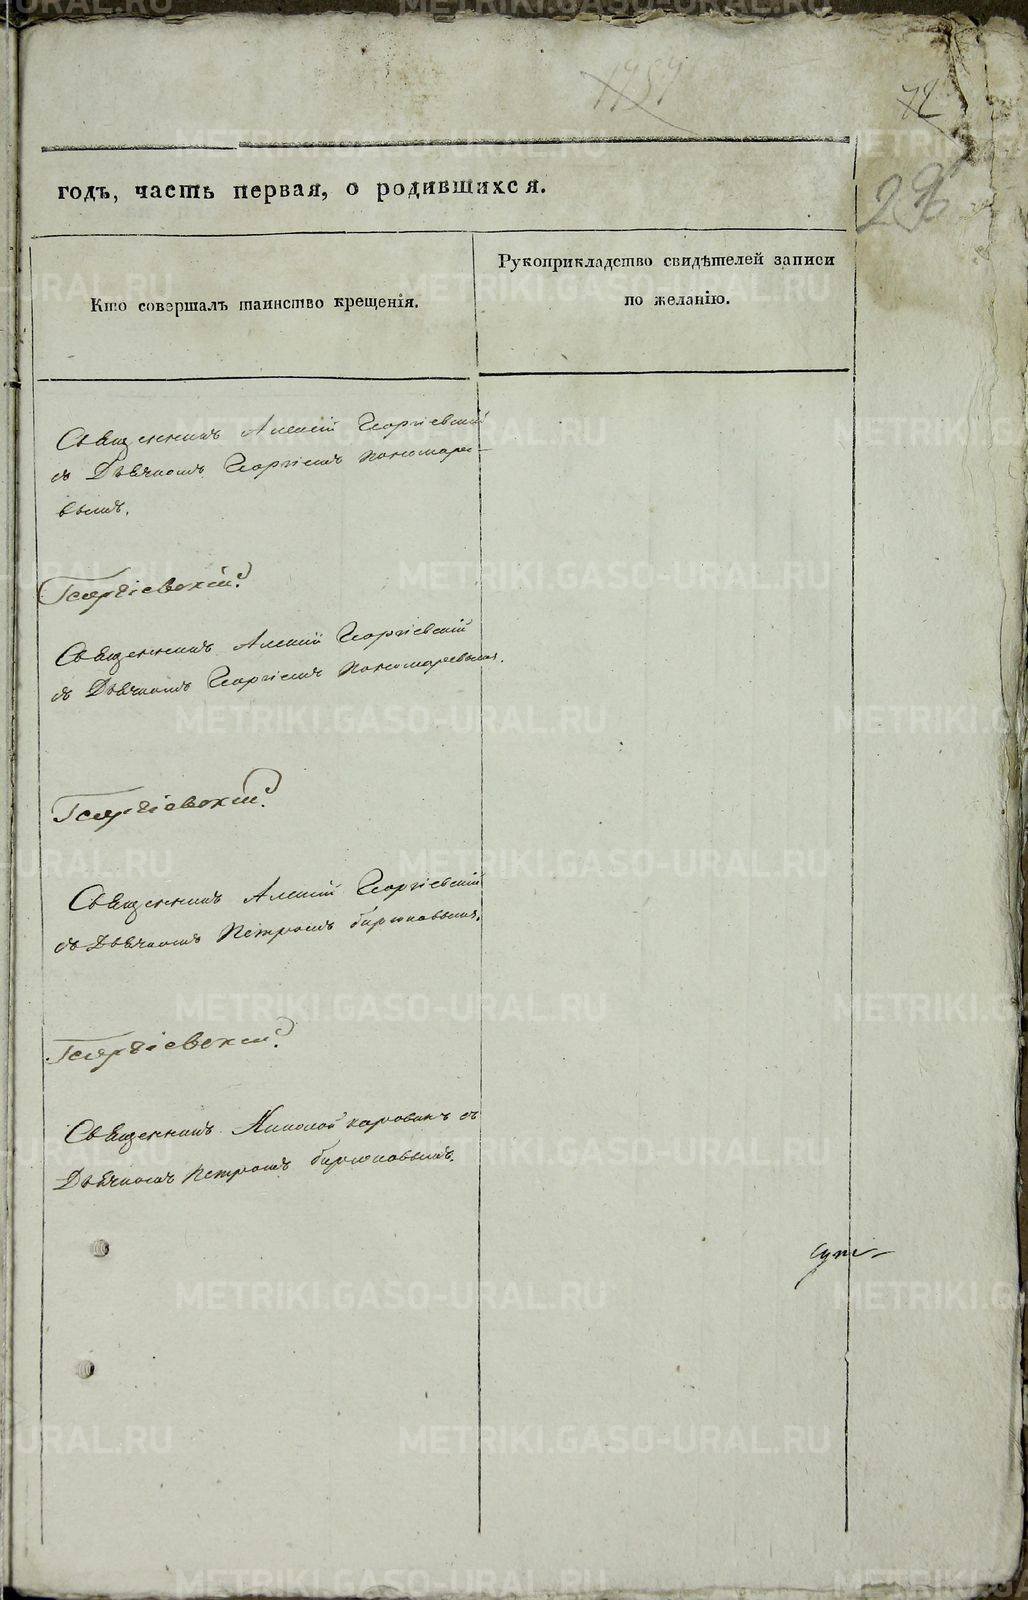 72
годъ, часть первая, о родившихся.
Кто совершалъ таинство крещенія.
Рукоприкладство свидѣтелей записи
по желанію.
Священникъ Алексій Георгіевскій
съ Дьячкомъ Георгіемъ Пономаре-
вымъ.
Георгіевскій
Священникъ Алексій Георгіевскій
съ Дьячкомъ Георгіемъ Пономаревымъ.
Георгіевскій
Священникъ Алексій Георгіевскій
съ Дьячкомъ Петромъ Бирюковымъ.
Георгіевскій
Священникъ Николай съ
Дьячкомъ Петромъ Бирюковымъ.
METRIKI.GASO-URAL.RU